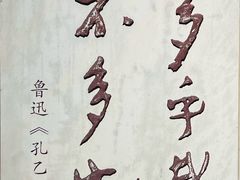 多乎哉
不多也
鲁迅《孔乙